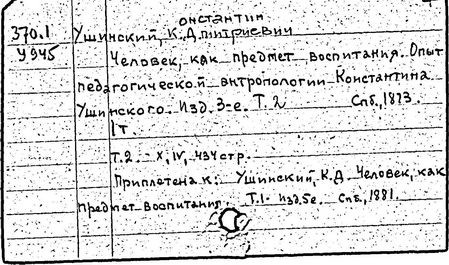 онстантин
370.1 Ушинский, К. Дмитриевич
У945 Человек, как предмет воспитания. Опыт
педагогической антропологии Константина
Ушинского. Изд. 3-е. Т. 2 Спб., 1873.
1т.
Т.2. - X, IV, 434 стр.
Приплетена к: Ушинский, К.Д. Человек, как
предмет воспитания. Т.1. Изд. 5е. Спб., 1881.